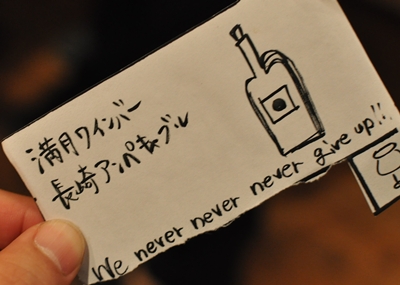 満月ワインバー
長崎アンペキャブル
We never never never give up!!